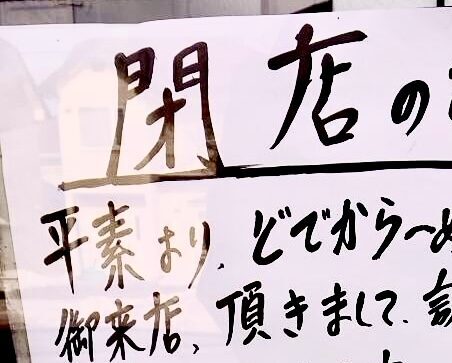 閉店の
平素より、どでからーめ
御来店、頂きまして、誠